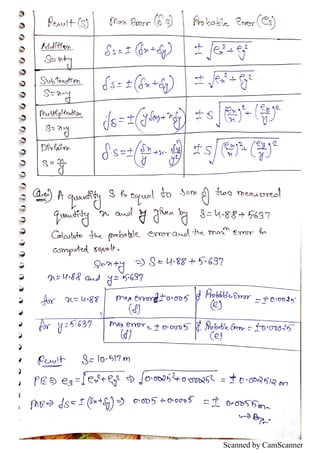 Result (S) Max Error (δs) Probable Error (es)
Addition
S=x+y δs = ± (δx+δy) ± √ex²+ey²
Subtraction
S=x-y δs = ± (δx+δy) ± √ex²+ey²
Multiplication
S=xy δs = ± (yδx+xδy) ± S √(ex/x)²+(ey/y)²
Division
S = x/y δs = ± (δx/y + x·δy/y²) ± S √(ex/x)²+(ey/y)²
A quantity S is equal to sum of two measured
quantity x and y given by S=4.88+5.637
Calculate the probable error and the maxm error in
computed result.
S=x+y ⇒ S= 4.88 + 5.637
x=4.88 and y=5.637
for x=4.88 max error = ±0.005 (δ) Probable Error (e) = ±0.0025
for y=5.637 max error = ±0.0005 (δ) Probable Error (e) = ±0.00025
Result S= 10.517m
PE ⇒ es = √ex²+ey² ⇒ √0.0025²+0.00025² = ± 0.002512 m
ME ⇒ δs = ± (δx+δy) ⇒ 0.005 + 0.0005 = ± 0.0055m
Scanned by CamScanner